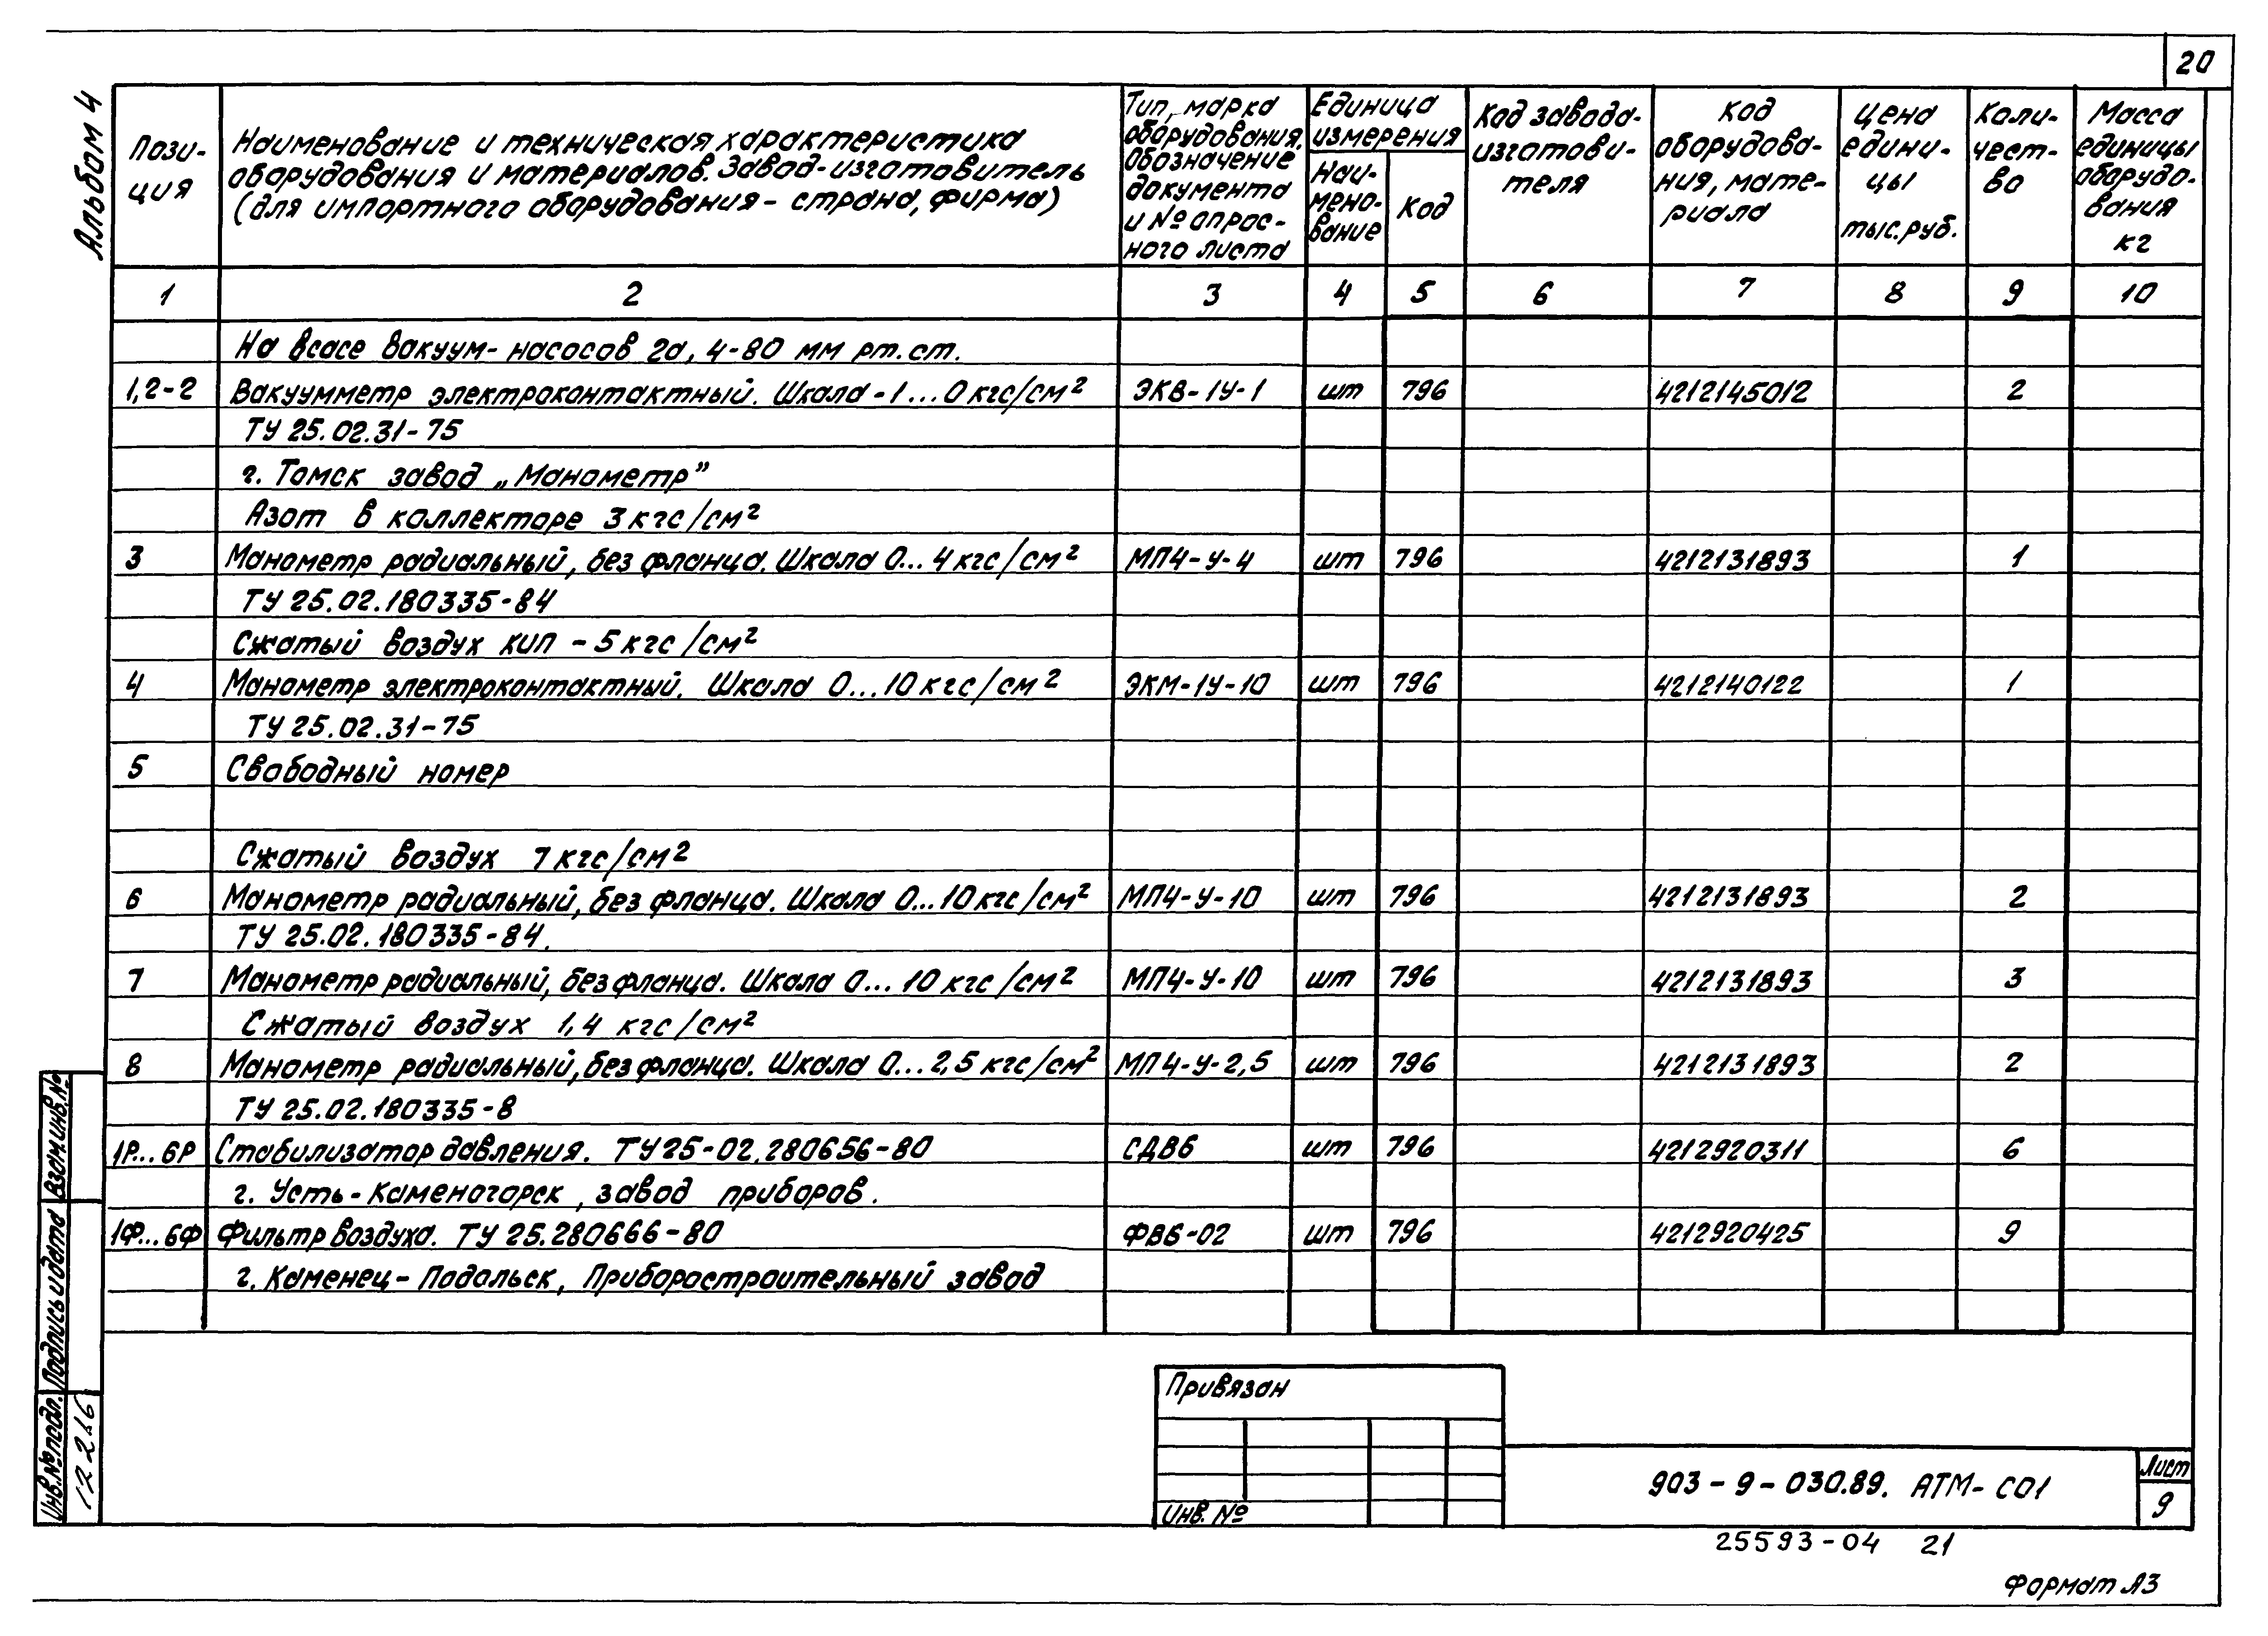 20
Альбом 4
Пози-
ция
Наименование и техническая характеристика
оборудования и материалов. Завод-изготовитель
(для импортного оборудования - страна, фирма)
Тип, марка
оборудования,
обозначение
документа
и № опрос-
ного листа
Единица
измерения
Наи-
мено-
вание
Код
Код завода-
изготови-
теля
Код
оборудова-
ния, мате-
риала
Цена
едини-
цы
тыс.руб.
Коли-
чест-
во
Масса
единицы
оборудо-
вания
кг
1 2 3 4 5 6 7 8 9 10
На всасе вакуум-насосов 2а, 4-80 мм рт.ст.
1,2-2 Вакуумметр электроконтактный. Шкала -1...0 кгс/см² ЭКВ-1У-1 шт 796 4212145012 2
ТУ 25.02.31-75
г. Томск завод „Манометр”
Азот в коллекторе 3 кгс/см²
3 Манометр радиальный, без фланца. Шкала 0...4 кгс/см² МП4-У-4 шт 796 4212131893 1
ТУ 25.02.180335-84
Сжатый воздух КИП - 5 кгс/см²
4 Манометр электроконтактный. Шкала 0...10 кгс/см² ЭКМ-1У-10 шт 796 4212140122 1
ТУ 25.02.31-75
5 Свободный номер
Сжатый воздух 7 кгс/см²
6 Манометр радиальный, без фланца. Шкала 0...10 кгс/см² МП4-У-10 шт 796 4212131893 2
ТУ 25.02.180335-84.
7 Манометр радиальный, без фланца. Шкала 0...10 кгс/см² МП4-У-10 шт 796 4212131893 3
Сжатый воздух 1,4 кгс/см²
8 Манометр радиальный, без фланца. Шкала 0...2,5 кгс/см² МП4-У-2,5 шт 796 4212131893 2
ТУ 25.02.180335-8
1Р...6Р Стабилизатор давления. ТУ25-02.280656-80 СДВ6 шт 796 4212920311 6
г. Усть-Каменогорск, завод приборов.
1Ф...6Ф Фильтр воздуха. ТУ 25.280666-80 ФВ6-02 шт 796 4212920425 9
г. Каменец-Подольск, Приборостроительный завод
Взам.инв.№
Подпись и дата
Инв.№подл.
Привязан
Инв. №
903-9-030.89. АТМ-СО1
Лист
9
25593-04 21
Формат А3